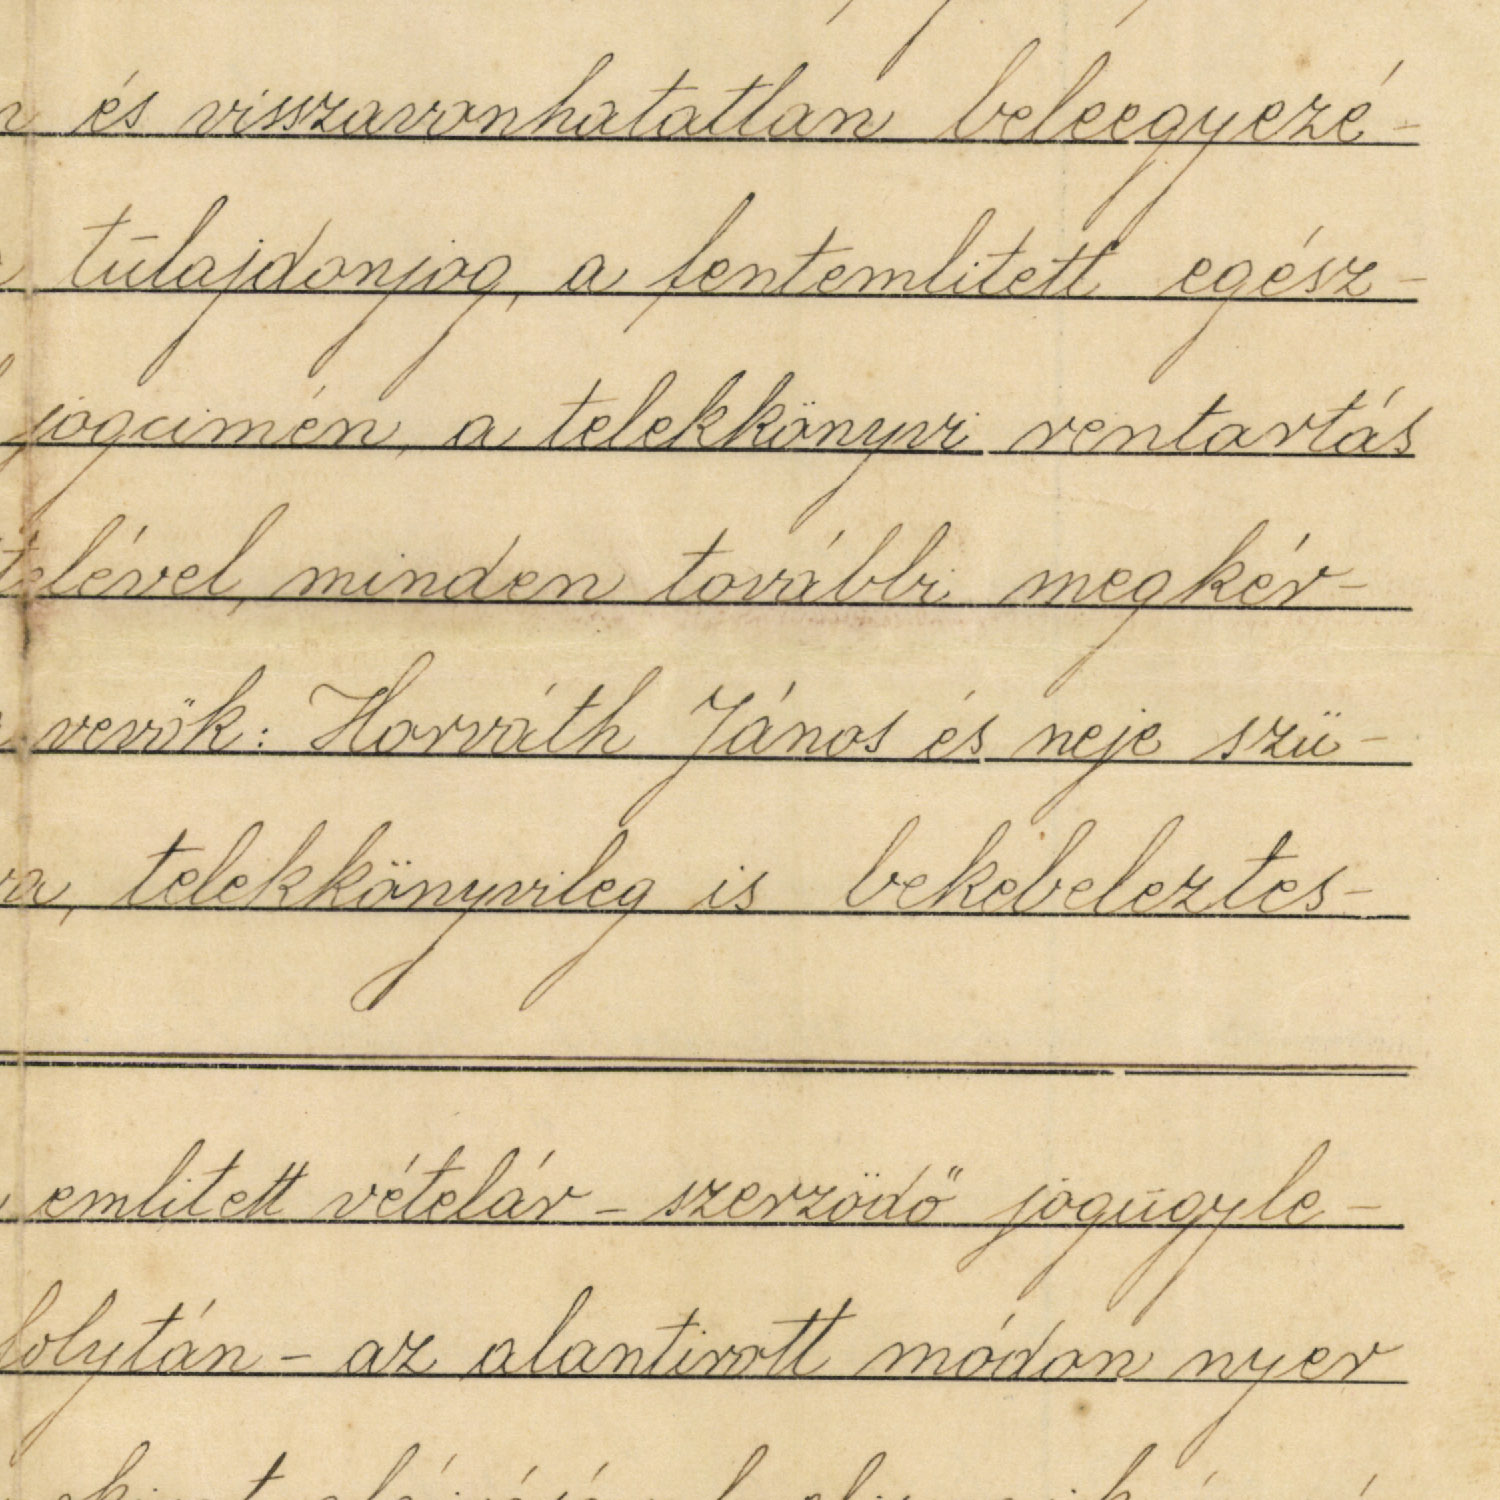 és visszavonhatatlan beleegyezé-
tulajdonjog, a fentemlitett egész-
jogcimén, a telekkönyvi rentartás
telével, minden további megkér-
vevők: Horváth János és neje szü-
ra, telekkönyvileg is bekebeleztes-
emlitett vételár - szerződő jogügyle-
folytán - az alantirott módon nyer